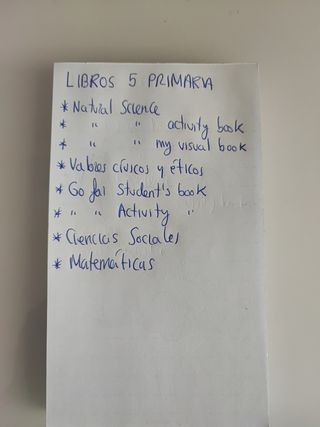 LIBROS 5 PRIMARIA
* Natural Science
* " " activity book
* " " my visual book
* Valores cívicos y éticos
* Go far Student's book
* " " Activity "
* Ciencias Sociales
* Matemáticas